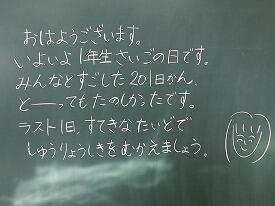 おはようございます。
いよいよ1年生さいごの日です。
みんなとすごした201日かん、
と――ってもたのしかったです。
ラスト1日、すてきなたいどで
しゅうりょうしきをむかえましょう。